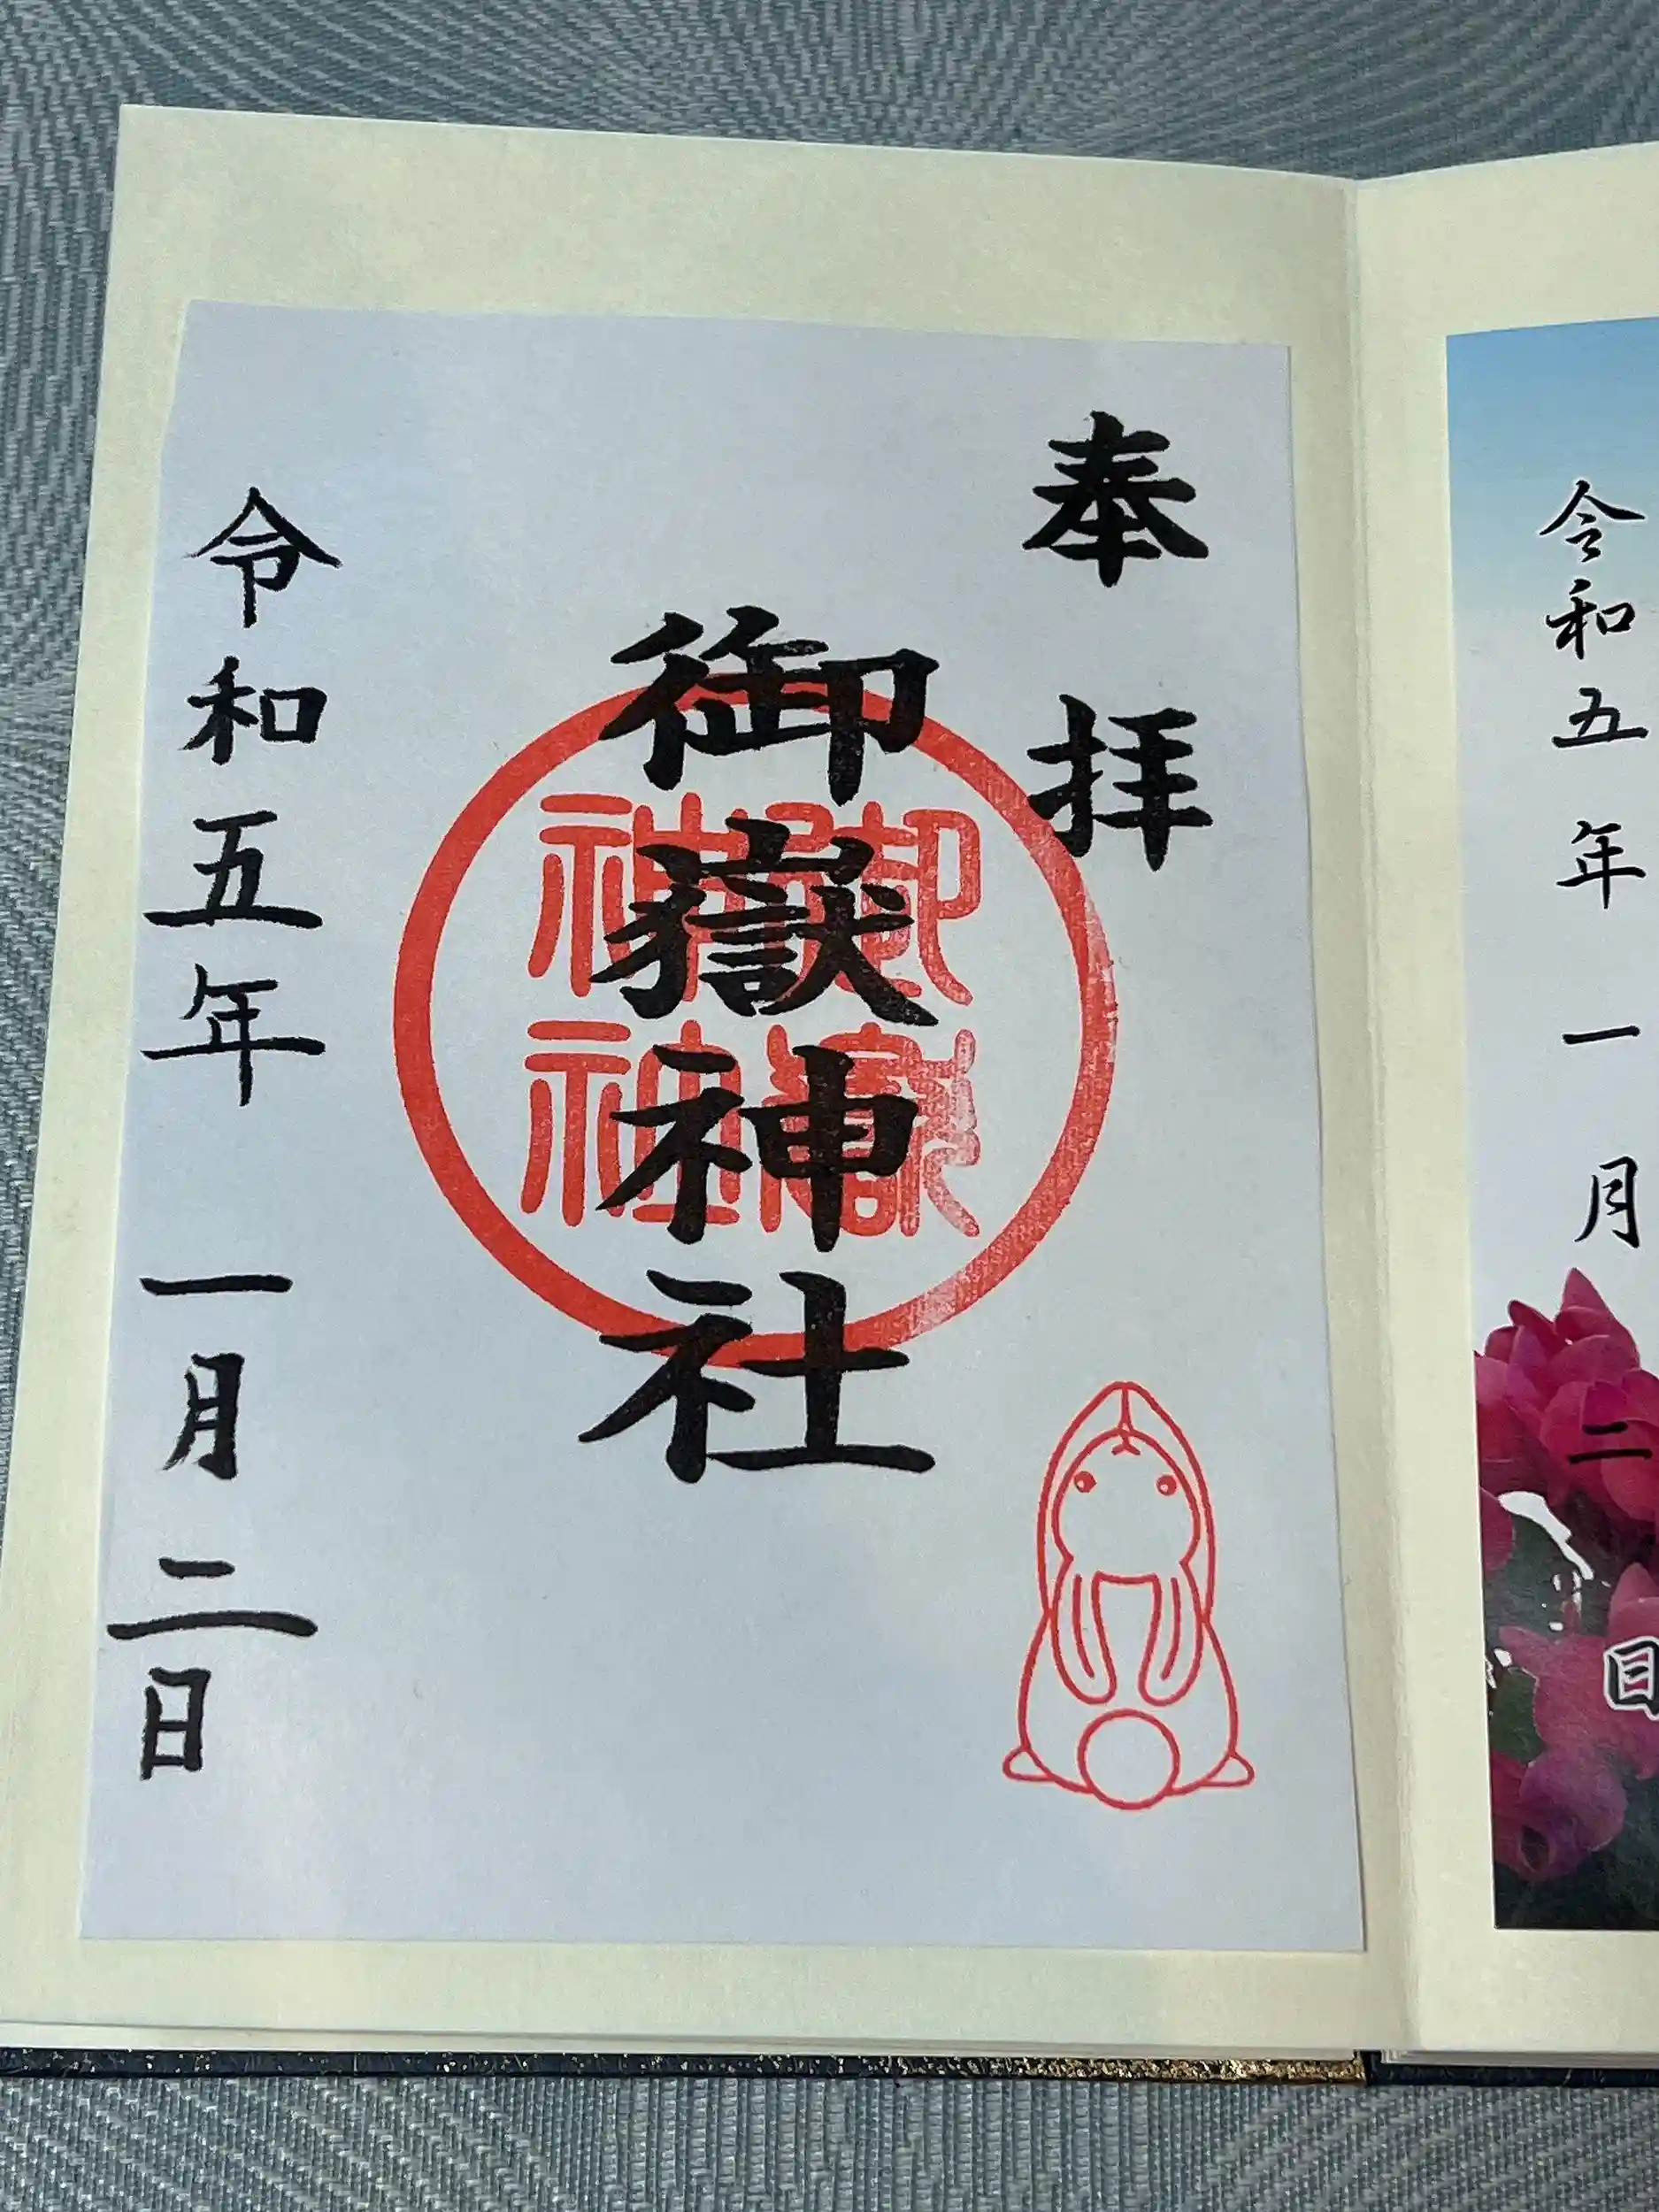 令和五年一月二日
奉拝
御嶽神社
御嶽神社
令和五年一月二日